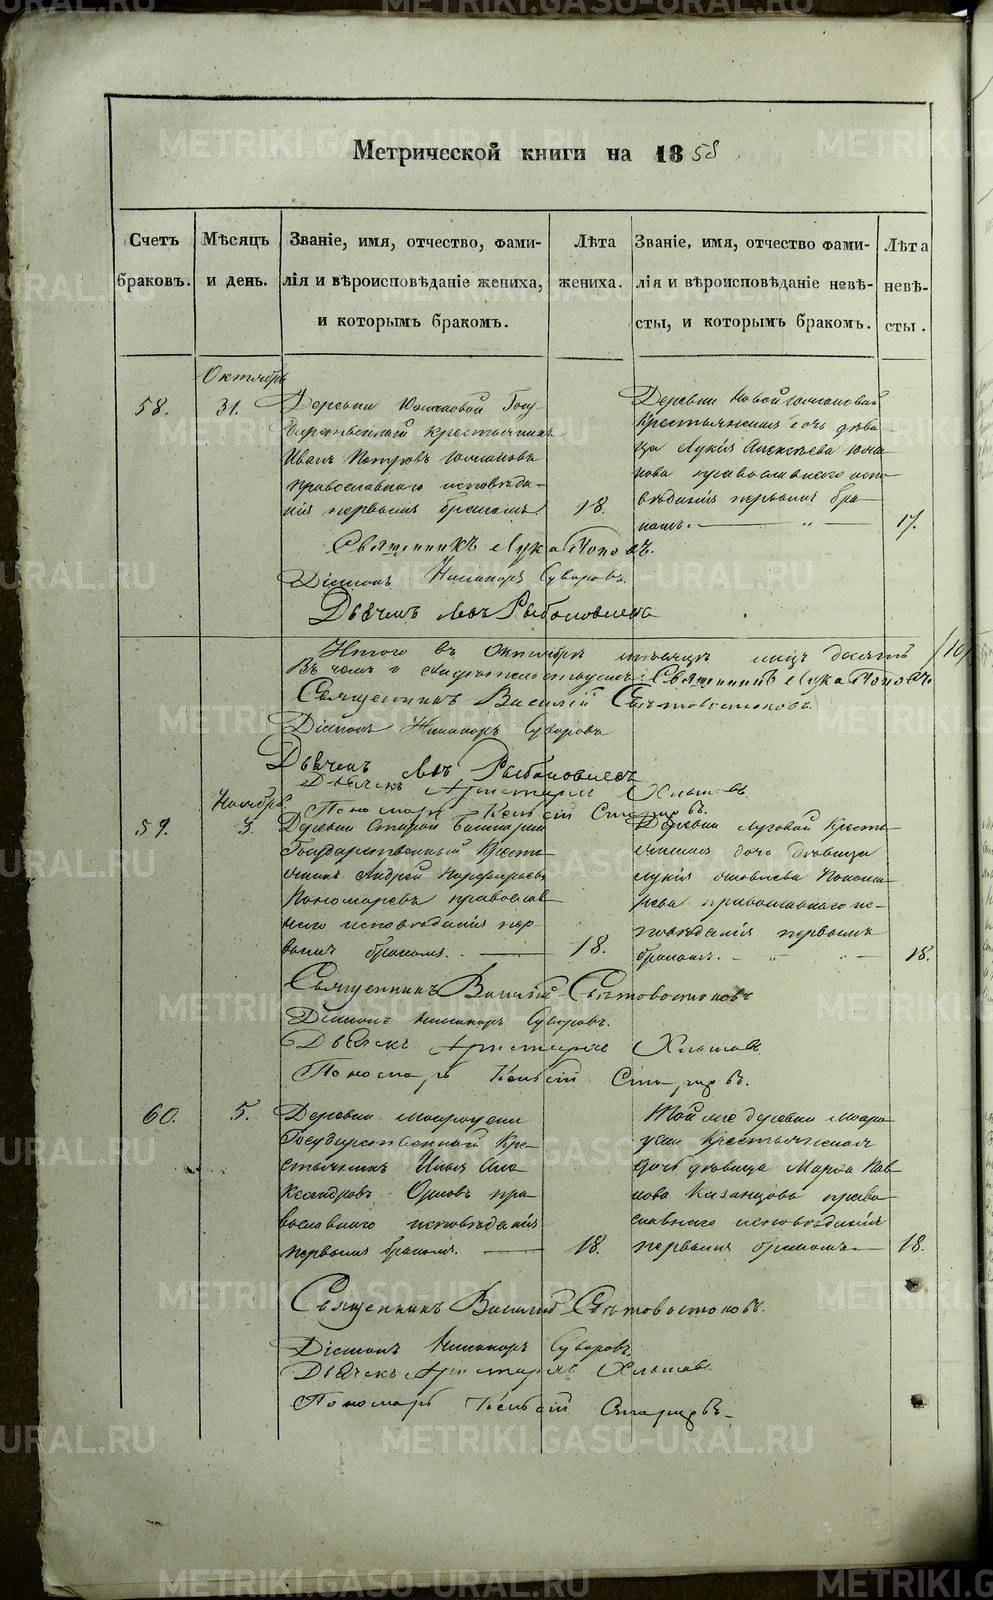 METRIKI.GASO-URAL.RU
Метрической книги на 1858
Счетъ браковъ.
Мѣсяцъ и день.
Званіе, имя, отчество, фами-
лія и вѣроисповѣданіе жениха,
и которымъ бракомъ.
Лѣта жениха.
Званіе, имя, отчество фами-
лія и вѣроисповѣданіе невѣ-
сты, и которымъ бракомъ.
Лѣта невѣ-
сты.
Октябрь
58.
31.
Деревни Юмшаовой Госу-
дарственный крестьянинъ
Иванъ Петровъ
православнаго исповѣда-
нія первымъ бракомъ
18.
Деревни Новой
крестьянская дочь дѣви-
ца Лукія Алексѣева
православнаго испо-
вѣданія первымъ бра-
комъ.
17.
Священникъ Лука Поповъ.
Діаконъ Никаноръ Суворовъ.
Дьячекъ Левъ
Итого въ Октябрѣ мѣсяцѣ лицъ десять /10/
Въ чемъ и свидѣтельствуемъ: Священникъ Лука Поповъ
Священникъ Василій Свѣтовостоковъ.
Діаконъ Никаноръ Суворовъ
Дьячекъ Левъ
Дьячекъ Аристархъ Хлыновъ.
Пономарь Евгеній Старцевъ.
Ноябрь
59.
3.
Деревни Старой
Государственный Кресть-
янинъ Андрей Порфирьевъ
Пономаревъ православ-
наго исповѣданія пер-
вымъ бракомъ.
18.
Деревни Луговой Кресть-
янская дочь дѣвица
Лукія Яковлева Понома-
рева православнаго ис-
повѣданія первымъ
бракомъ.
18.
Священникъ Василій Свѣтовостоковъ
Діаконъ Никаноръ Суворовъ.
Дьячекъ Аристархъ Хлыновъ
Пономарь Евгеній Старцевъ.
60.
5.
Деревни
Государственный Кре-
стьянинъ Илья Але-
ксандровъ Орловъ пра-
вославнаго исповѣданія
первымъ бракомъ.
18.
Той же деревни
крестьянская
дочь дѣвица Марѳа Пав-
лова Казанцова право-
славнаго исповѣданія
первымъ бракомъ
18.
Священникъ Василій Свѣтовостоковъ.
Діаконъ Никаноръ Суворовъ
Дьячекъ Аристархъ Хлыновъ.
Пономарь Евгеній Старцевъ.